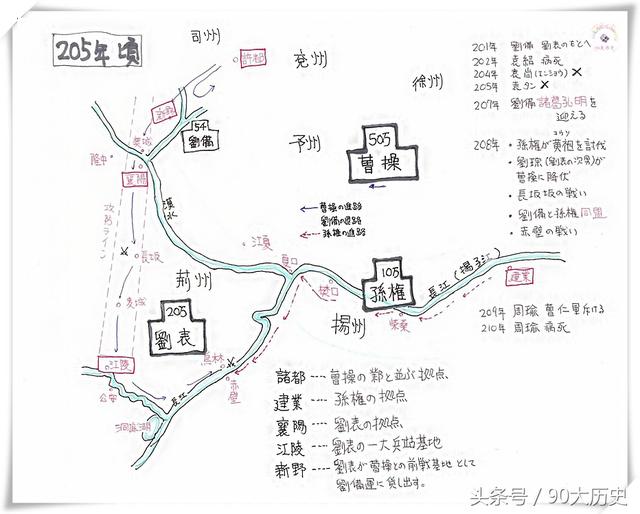 205年頃
司州
兖州
徐州
予州
荆州
揚州
許都
新野
樊城
隆中
襄陽
劉備
50万
曹操
漢水
長坂
麦城
20万
劉表
江陵
公安
洞庭湖
長江
烏林
赤壁
江夏
夏口
樊口
10万
孫権
柴桑
長江(揚子江)
建業
曹操の進路
劉備の進路
孫権の進路
201年 劉備 劉表のもとへ
202年 袁紹 病死
204年 袁尚(エンショウ)×
205年 袁タン ×
207年 劉備 諸葛孔明を
迎える
208年 ・孫権が黄祖を討伐
コウソ
・劉琮(劉表の次男)が
曹操に降伏
・長坂坂の戦い
・劉備と孫権 同盟
・赤壁の戦い
209年 周瑜 曹仁
210年 周瑜 病死
諸都 ---- 曹操の鄴と並ぶ拠点、
建業 ---- 孫権の拠点
襄陽 ---- 劉表の拠点、
江陵 ---- 劉表の一大兵站基地
新野 ---- 劉表が曹操との前戦基地として
劉備運に貸し出す。
头条号 / 90大历史